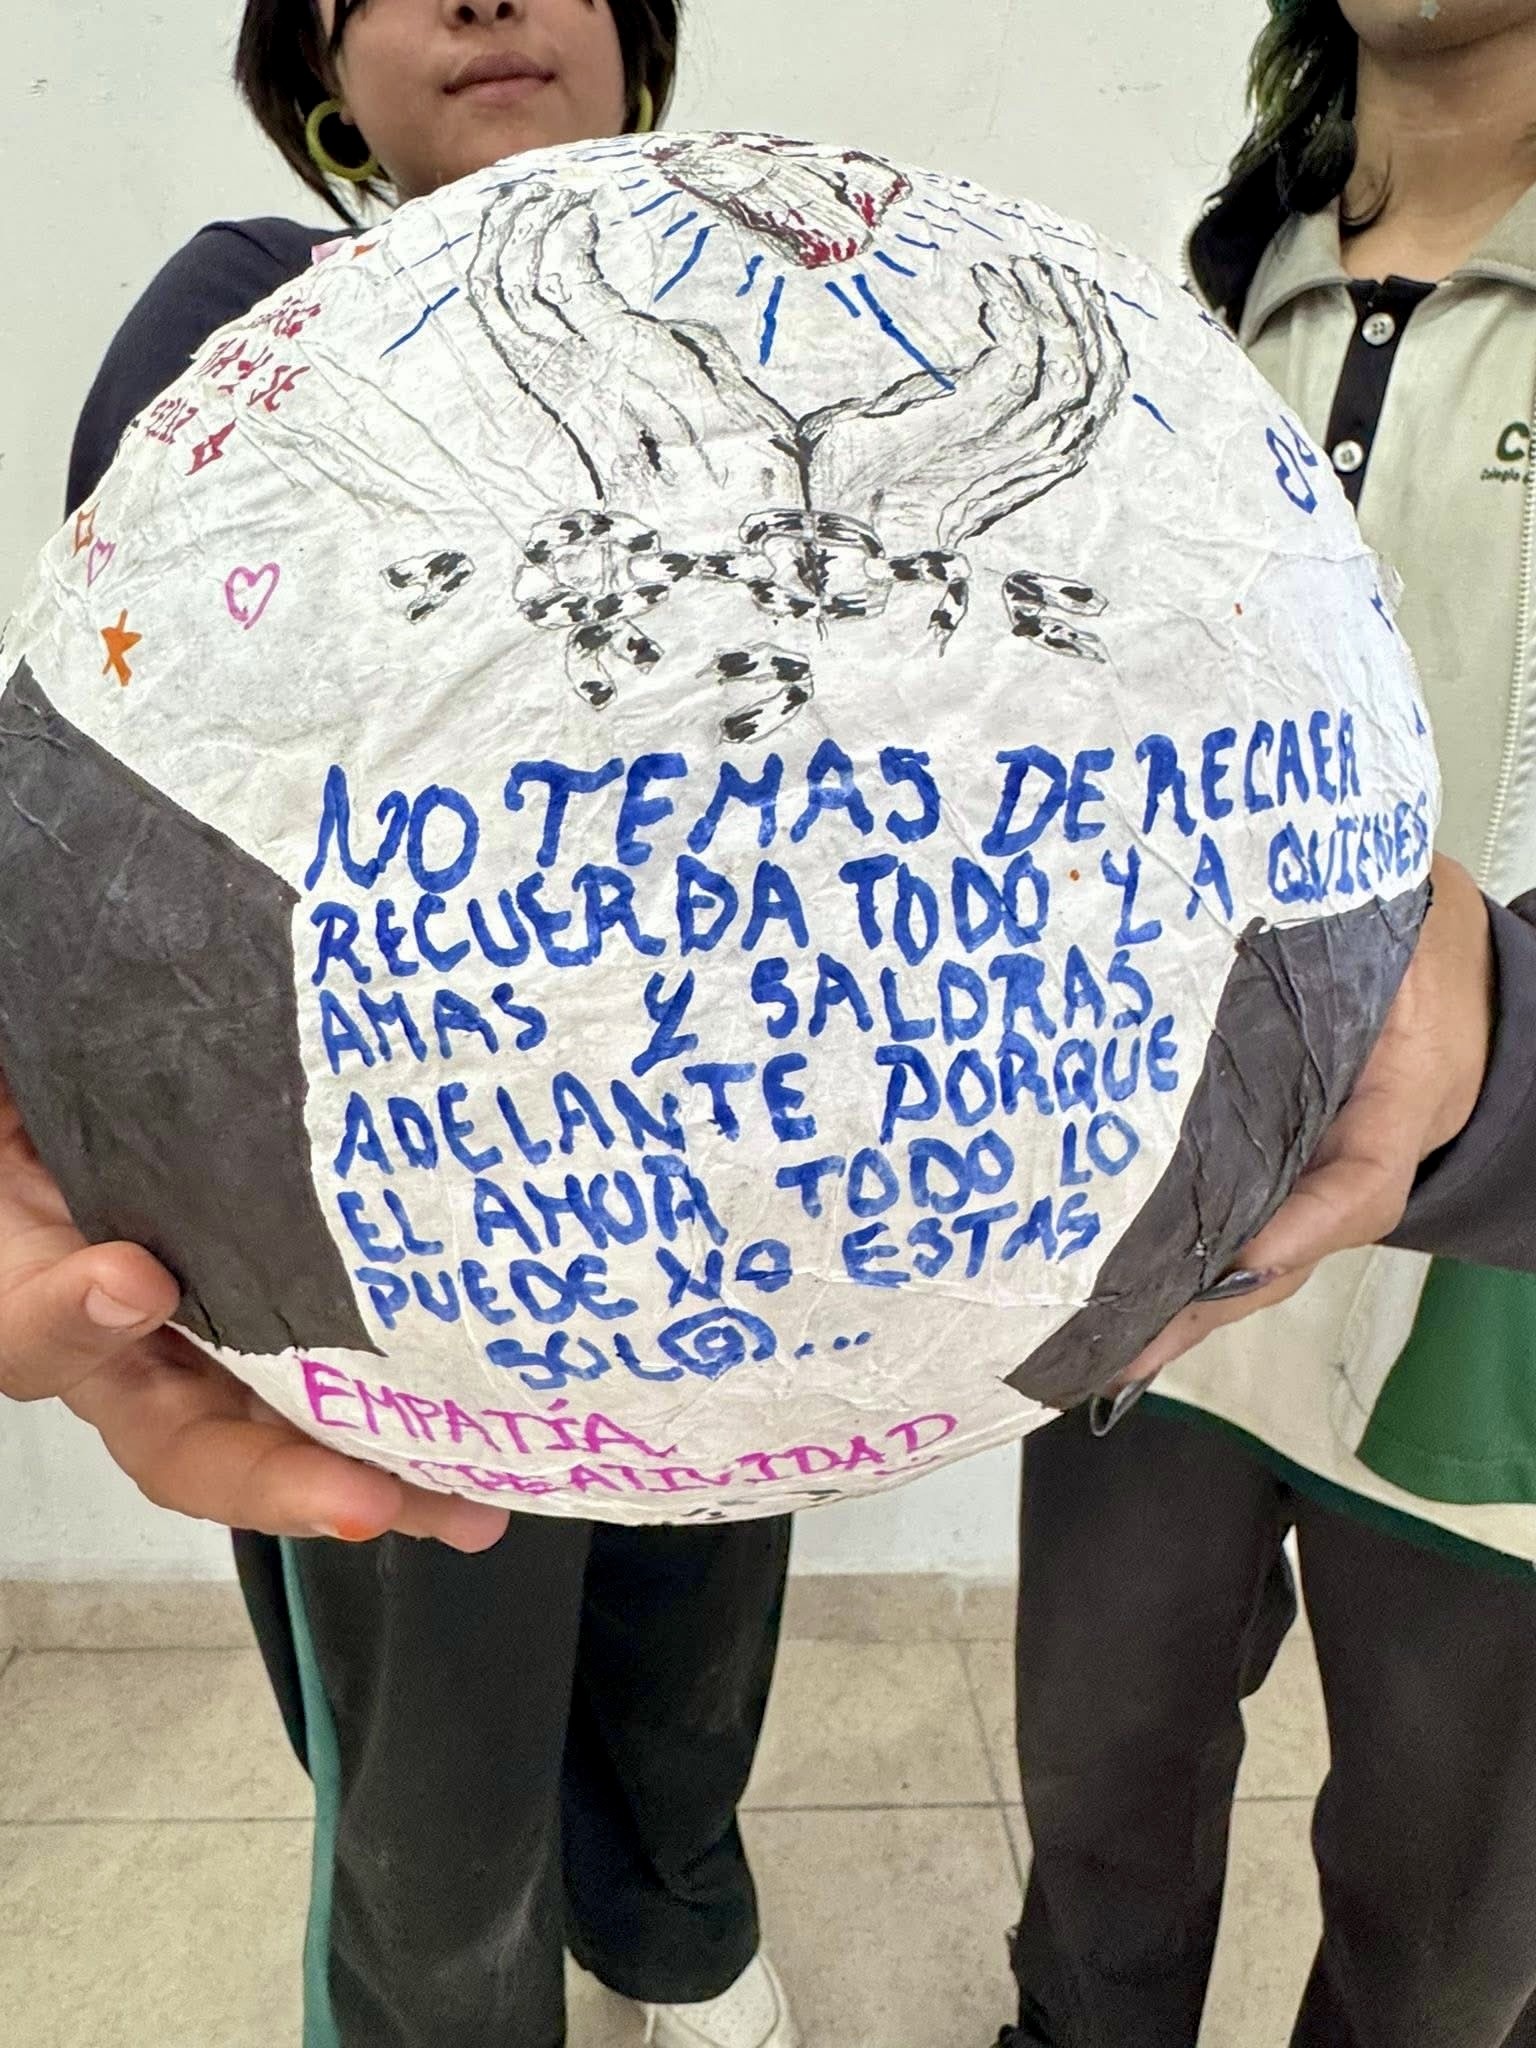 NO TEMAS DE RECAER
RECUERDA TODO Y A QUIENES
AMAS Y SALDRAS
ADELANTE PORQUE
EL AMOR TODO LO
PUEDE NO ESTAS
SOL@...
EMPATÍA
CREATIVIDAD